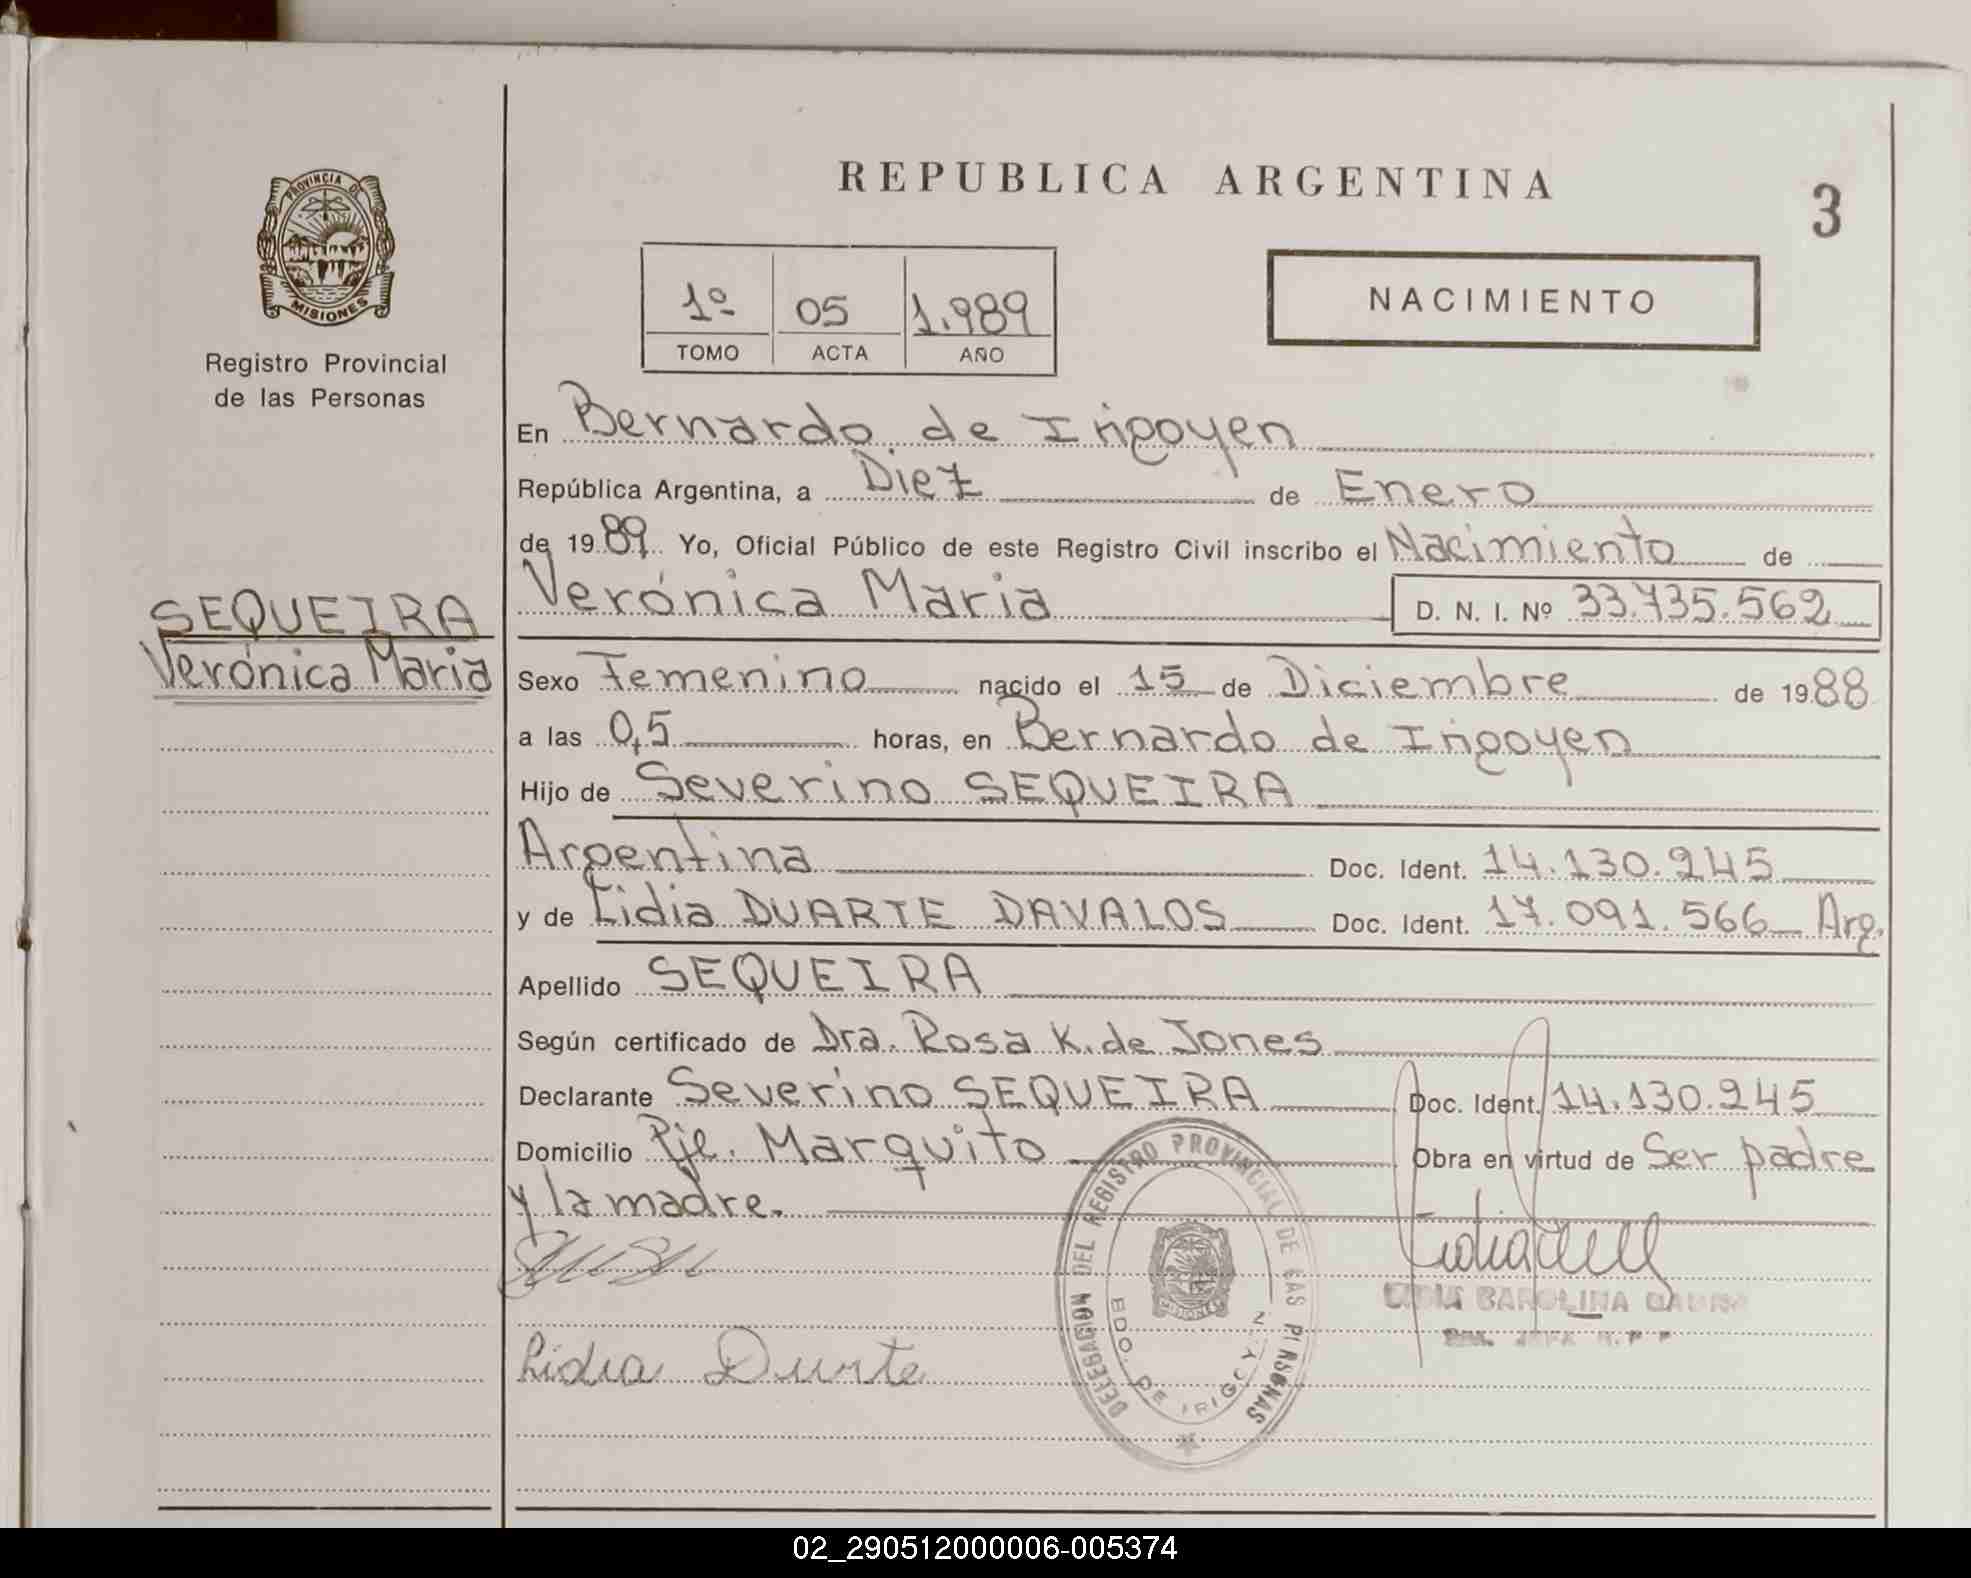 REPUBLICA ARGENTINA
3
PROVINCIA DE
MISIONES
Registro Provincial
de las Personas
1º 05 1.989
TOMO ACTA AÑO
NACIMIENTO
En Bernardo de Irigoyen
República Argentina, a Diez de Enero
de 1989 Yo, Oficial Público de este Registro Civil inscribo el Nacimiento de
Verónica Maria D. N. I. Nº 33.735.562
SEQUEIRA
Verónica Maria
Sexo Femenino nacido el 15 de Diciembre de 1988
a las 0,5 horas, en Bernardo de Irigoyen
Hijo de Severino SEQUEIRA
Argentina Doc. Ident. 14.130.245
y de Lidia DUARTE DAVALOS Doc. Ident. 17.091.566 Arg.
Apellido SEQUEIRA
Según certificado de Dra. Rosa K. de Jones
Declarante Severino SEQUEIRA Doc. Ident. 14.130.245
Domicilio Pje. Marquito Obra en virtud de Ser padre
y la madre.
DELEGACION DEL REGISTRO PROVINCIAL DE LAS PERSONAS
BDO. DE IRIGOYEN
MISIONES
CAROLINA
Lidia Durte
02_290512000006-005374